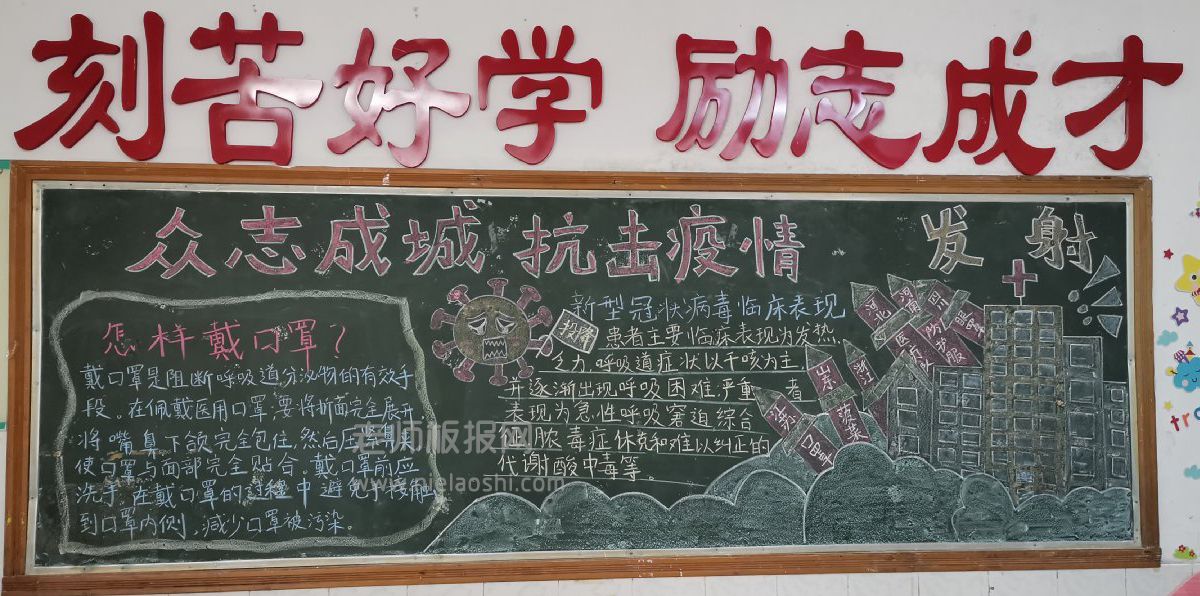 刻苦好学 励志成才
众志成城 抗击疫情
发射
怎样戴口罩？
戴口罩是阻断呼吸道分泌物的有效手
段。在佩戴医用口罩,要将折面完全展开
将嘴鼻下颌完全包住,然后压紧鼻夹
使口罩与面部完全贴合。戴口罩前应
洗手,在戴口罩的过程中避免手接触
到口罩内侧,减少口罩被污染。
投降
新型冠状病毒临床表现
患者主要临床表现为发热
乏力,呼吸道症状以干咳为主
并逐渐出现呼吸困难,严重者
表现为急性呼吸窘迫综合
征,脓毒症休克和难以纠正的
代谢酸中毒等。
河北
河南
四川
医疗
防护服
山东
浙江
蔬菜
口罩
+
老师板报网
www.nielaoshi.com